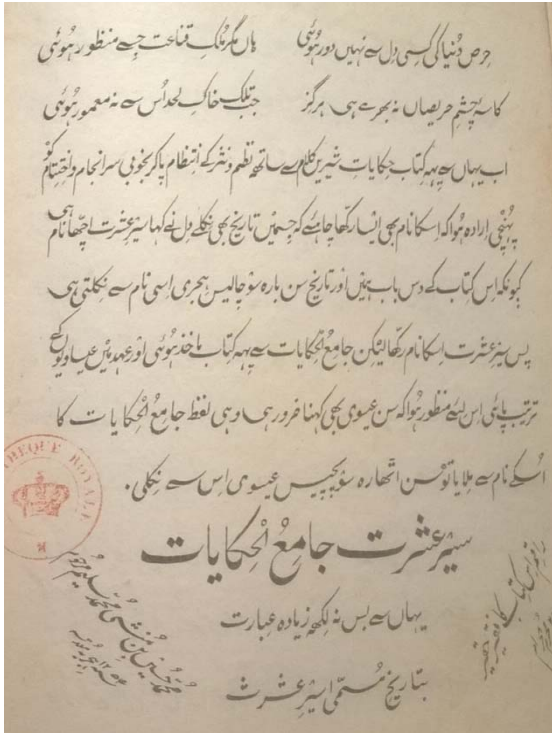 حرص دنیا کی کسی دل سے نہیں دور ہُوئی ہاں مگر مُلکِ قناعت جسے منظور ہُوئی
کاسہ چشمِ حریصاں نہ بھرے ہی ہرگز جب تلک خاکِ لحد اُس سے نہ معمور ہُوئی
اب یہاں سے یہہ کتاب حکایاتِ شیریں کلام سے ساتھ نظم و نثر کے انتظام پا کر بخوبی سرانجام و اختتام کو
پہنچی ارادہ ہُوا کہ اسکا نام بھی ایسا رکھا چاہئے کہ جسمیں تاریخ بھی نکلے دل نے کہا سیرِ عشرت اچھا نام ہی
کیونکہ اِس کتاب کے دس باب ہَیں اَور تاریخ سن بارہ سَو چالیس ہجری اِسی نام سے نکلتی ہی
پس سیرِ عشرت اِسکا نام رکھا لیکن جامعُ الحکایات سے یہہ کتاب ماخذ ہُوئی اَور عہد مَیں عیسَاویوں کے
ترتیب پائی اِس لئے منظور ہُوا کہ سن عیسوی بھی کہنا ضرور ہی وہی لفظ جامعُ الحکایات کا
اُسکے نام سے مِلایا تو سن اٹھارہ سَو پچیس عیسوی اِس سے نِکلی
سیرِ عشرت جامعُ الحکایات
یہاں سے بس نہ لکھ زیادہ عبارت
بتاریخ مُسمّٰی اسیرِ عشرت
محمد حسین بن منشی محمد سلیم مرحوم
THEQUE ROYALE